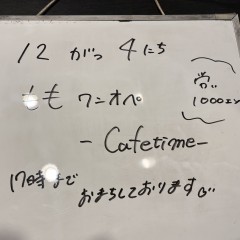 12 がつ 4にち
も ワンオペ
1000エン
- Cafetime-
17時まで
おまちしております